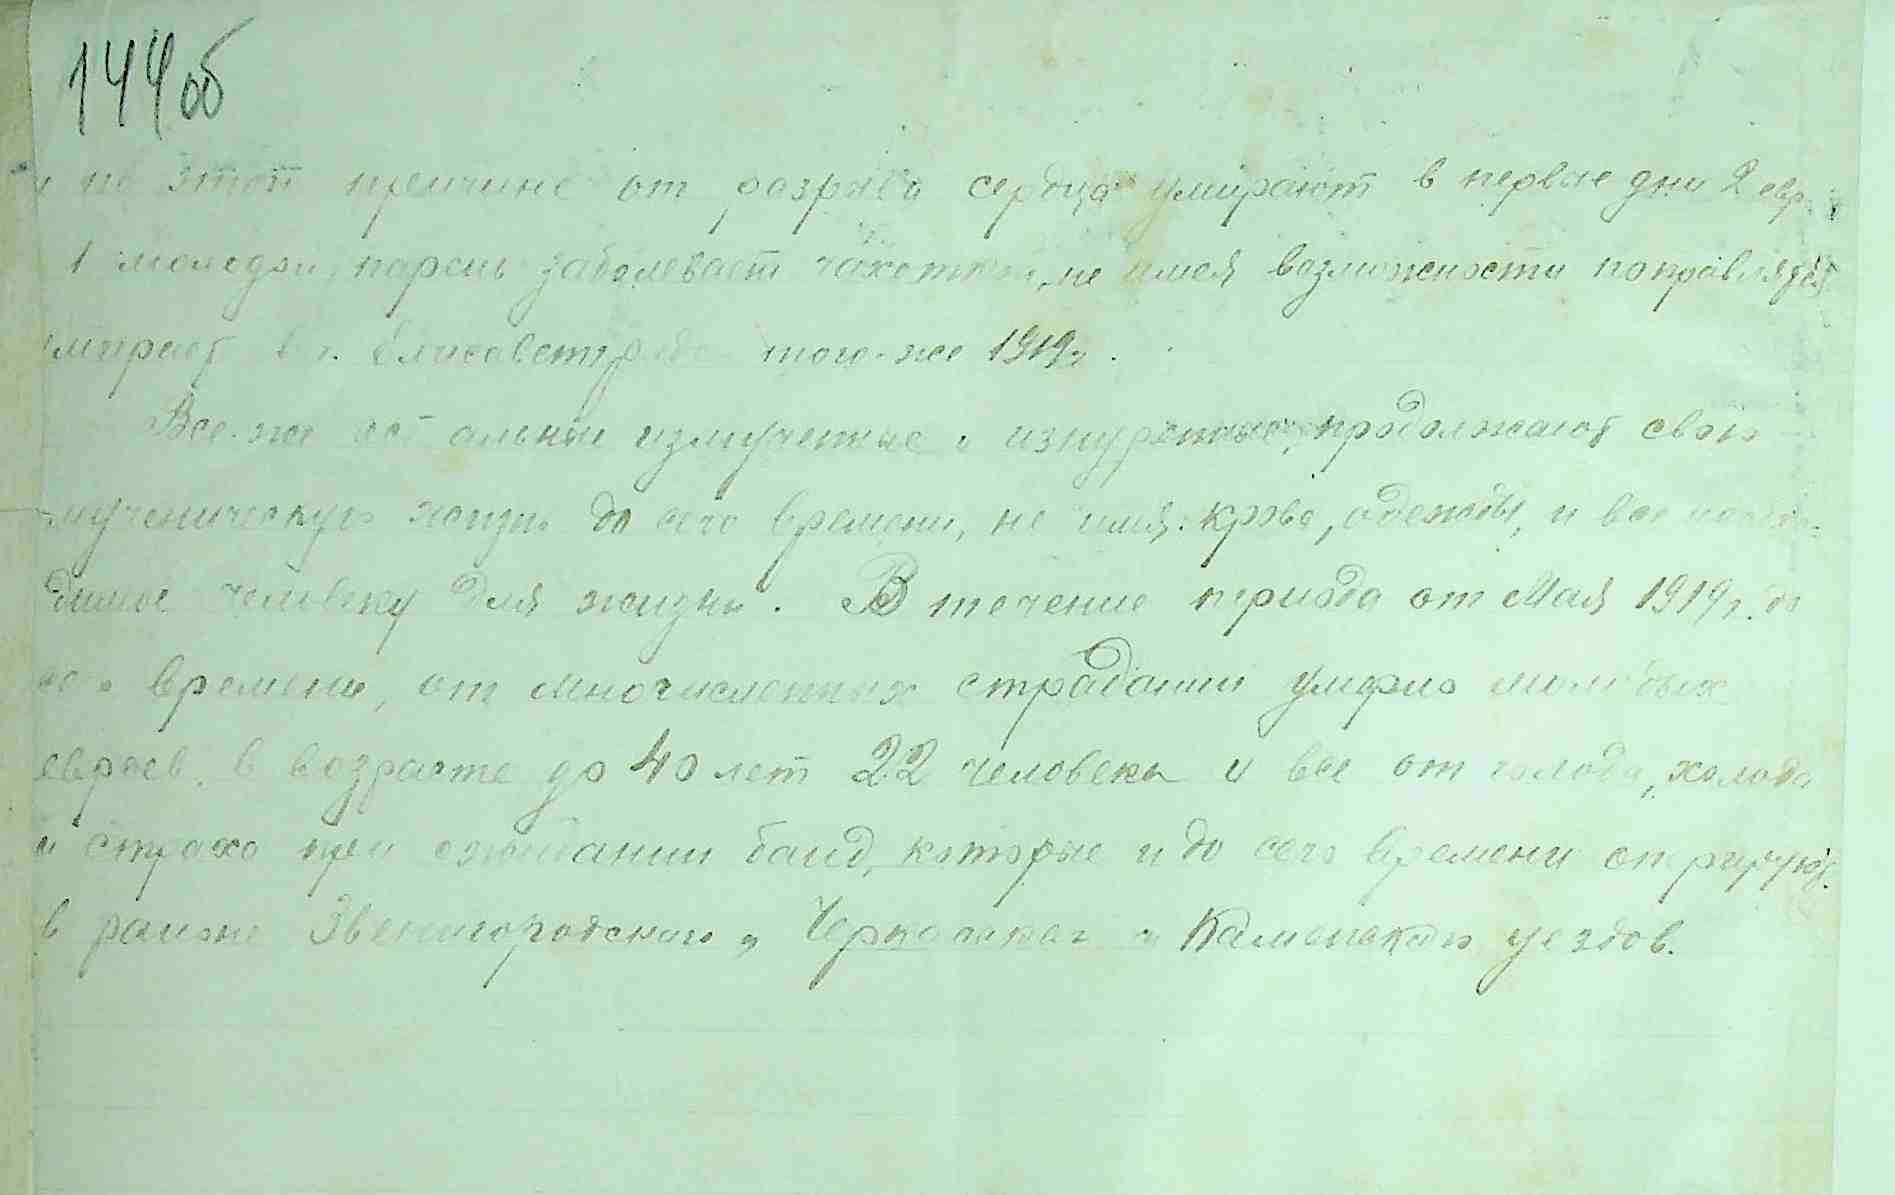 144об
и по этой причине от разрыва сердца умирают в первые дни 2 евр.
1 молодой парень заболевает чахоткой, не имея возможности поправляться
умирает в г. Елисаветграде того-же 1919г.
Все-же остальные измученные и изнуренные, продолжают свою
мученическую жизнь до сего времени, не имея крова, одежды, и все необхо-
димое человеку для жизни. В течение периода от Мая 1919г. до
сего времени, от многочисленных страданий умерло молодых
евреев, в возрасте до 40 лет 22 человека и все от голода, холода
и страха при ожидании банд, которые и до сего времени оперируют
в районе Звенигородского, Черкасского и Каменского уездов.